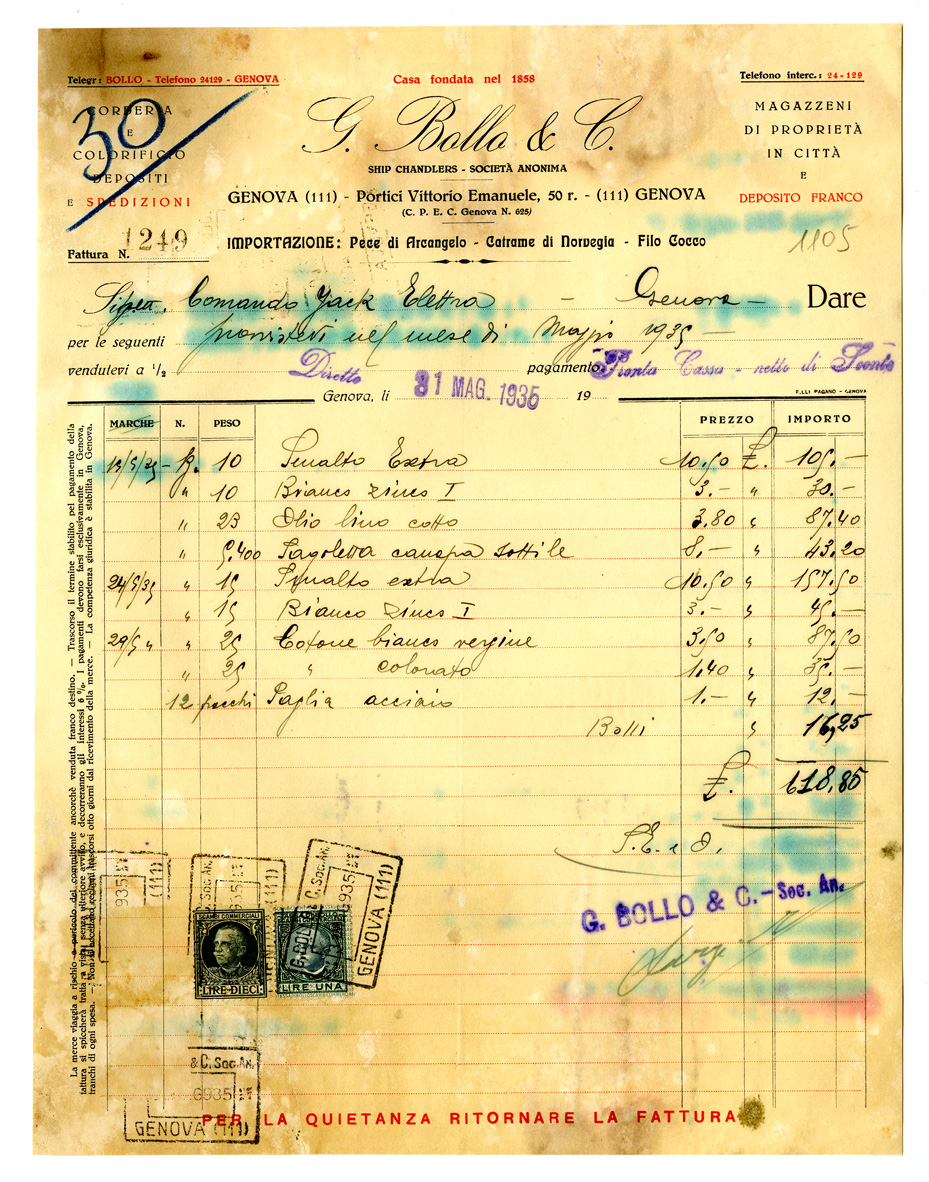 Telegr: BOLLO - Telefono 24129 - GENOVA
Casa fondata nel 1858
Telefono interc.: 24-129
30
CORDERIA
E
COLORIFICIO
DEPOSITI
E SPEDIZIONI
G. Bollo & C.
SHIP CHANDLERS - SOCIETÀ ANONIMA
GENOVA (111) - Portici Vittorio Emanuele, 50 r. - (111) GENOVA
(C. P. E. C. Genova N. 625)
MAGAZZENI
DI PROPRIETÀ
IN CITTÀ
E
DEPOSITO FRANCO
Fattura N. 1249
IMPORTAZIONE: Pece di Arcangelo - Catrame di Norvegia - Filo Cocco
1105
Comando Yack Elettra - Genova - Dare
per le seguenti provvistevi nel mese di Maggio 1935 -
vendutevi a ½ Diretto pagamento Pronta Cassa - netto di Sconto
Genova, li 31 MAG. 1935 19
F.LLI PAGANO - GENOVA
MARCHE N. PESO PREZZO IMPORTO
13/5/35 - Kg. 10 Smalto Extra 10.50 £. 105.-
" 10 Bianco zinco I 3.- " 30.-
" 23 Olio lino cotto 3.80 " 87.40
" 5.400 Sagoletta canapa sottile 8.- " 43.20
24/5/35 " 15 Smalto extra 10.50 " 157.50
" 15 Bianco zinco I 3.- " 45.-
29/5 " " 25 Cotone bianco vergine 3.50 " 87.50
" 25 " colorato 1.40 " 35.-
12 pacchi Paglia acciaio 1.- " 12.-
Bolli " 16,25
£. 618,85
S. E. e O.
G. BOLLO & C. - Soc. An.
La merce viaggia a rischio e pericolo del committente ancorchè venduta franco destino. — Trascorso il termine stabilito pel pagamento della
fattura si spiccherà tratta a vista senza ulteriore avviso, e decorreranno gli interessi 6 %. I pagamenti devono farsi esclusivamente in Genova,
franchi di ogni spesa. — Non si accettano reclami trascorsi otto giorni dal ricevimento della merce. — La competenza giuridica è stabilita in Genova.
935
(111)
C. Soc. An.
935
C. Soc. An.
935
G. BOLLO
GENOVA (111)
SCAMBI COMMERCIALI
LIRE DIECI
LIRE UNA
& C. Soc. An.
935
GENOVA (111)
PER LA QUIETANZA RITORNARE LA FATTURA